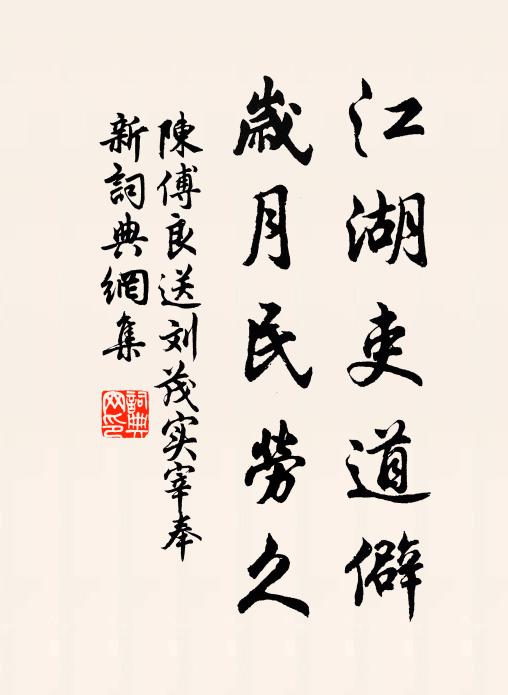 江湖吏道僻
歲月民勞久
陳傅良送刘茂实宰奉
新詞典網集
詞典网印